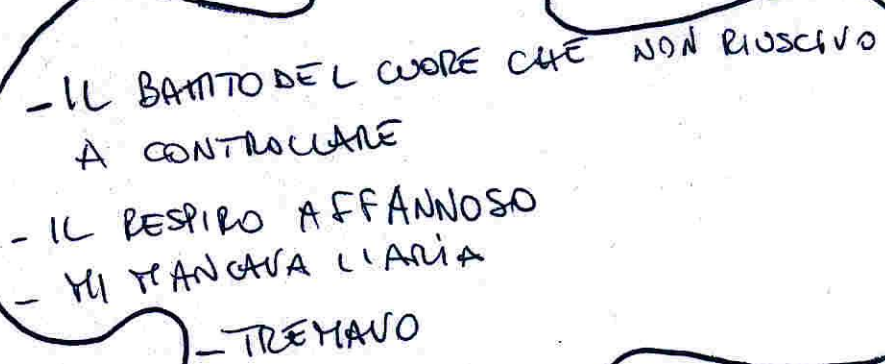 - IL BATTITO DEL CUORE CHE NON RIUSCIVO
A CONTROLLARE
- IL RESPIRO AFFANNOSO
- MI MANCAVA L'ARIA
- TREMAVO